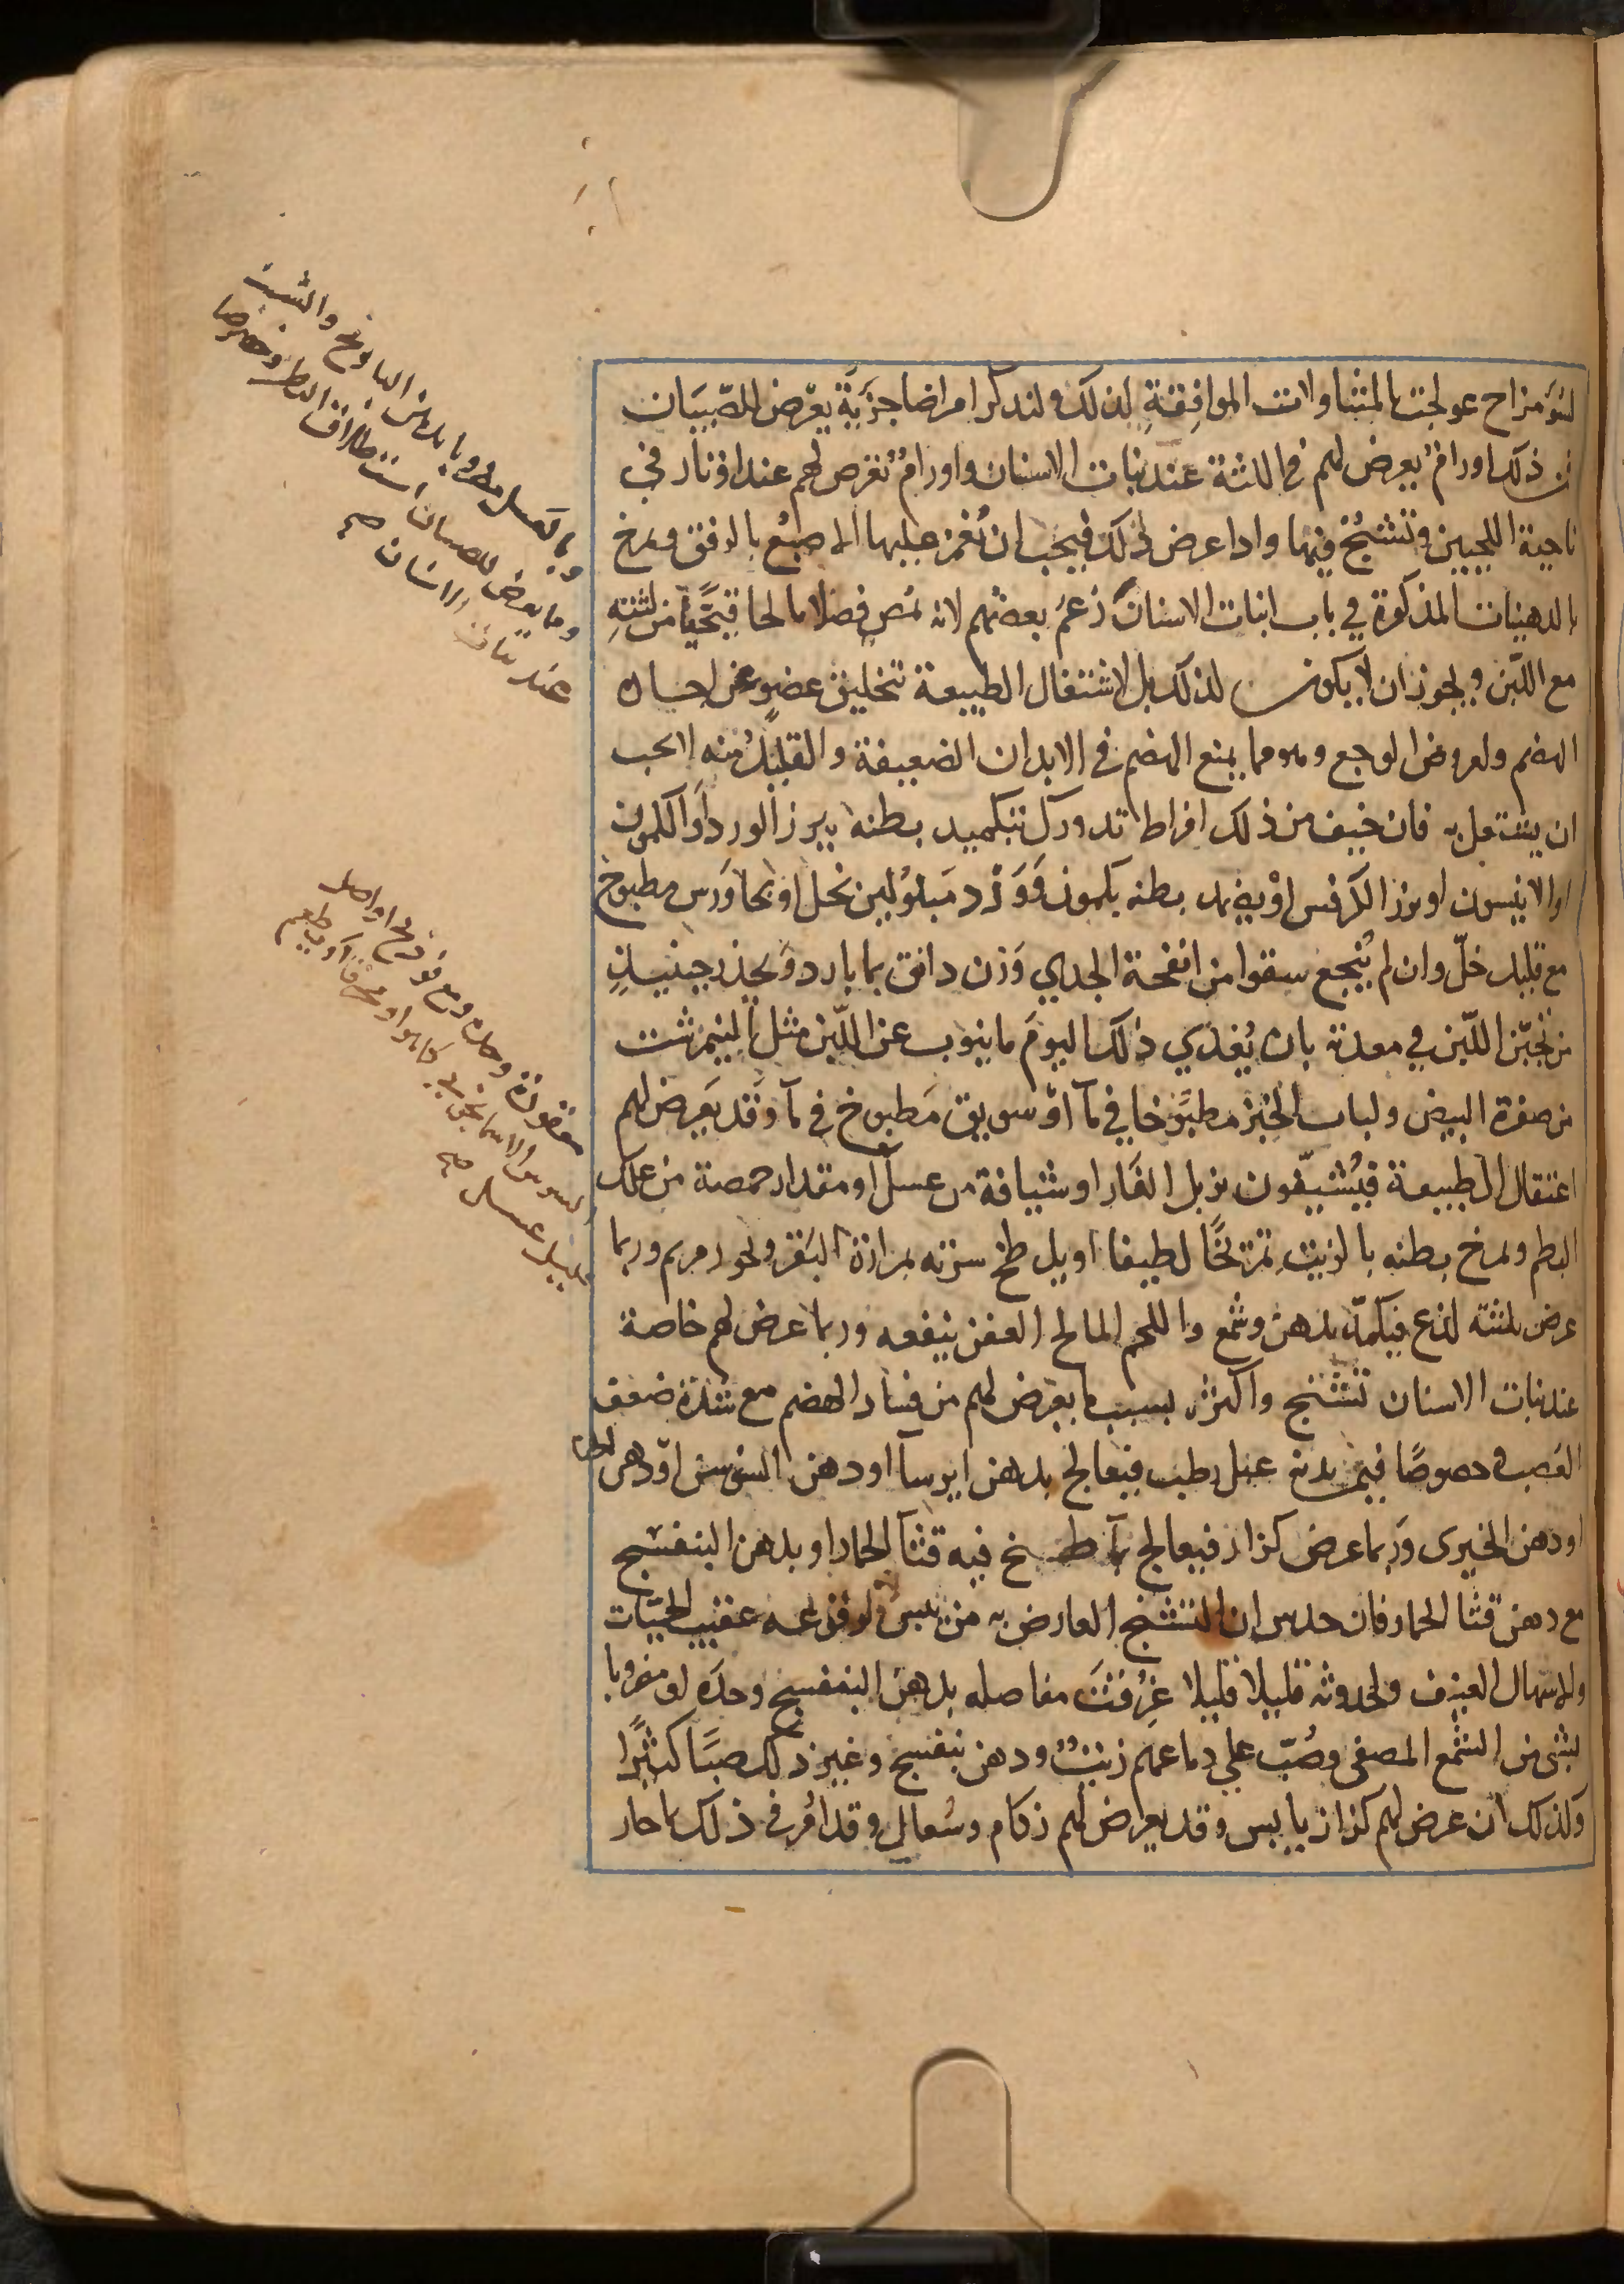 لسوء مزاج عولجت بالمتناولات الموافقة لذلك ولنذكر امراضا جزية يعرض للصبيان
فمن ذلك اورام يعرض لهم في اللثة عند نبات الاسنان واورام تعرض لهم عند اوتار في
ناحية اللحيين وتشنج فيها واذا عرض ذلك فيجب ان تغمز عليها الاصبع بالرفق ويمرخ
بالدهنيات المذكورة في باب انبات الاسنان زعم بعضهم لانه يمص فضلا مالحا قيحيا من لثته
مع اللبن ويجوز ان لا يكون لذلك بل لاشتغال الطبيعة بتخليق عضو عن اجادة
الهضم ولعروض الوجع وهو مما يمنع الهضم في الابدان الضعيفة والقليل منه لا يجب
ان يشتغل به فان خيف من ذلك افراط تدورك بتكميد بطنه ببزر الورد او الكمون
او الانيسون او بزر الكرفس او يضمد بطنه بكمون وورد مبلولين بخل او بجاورس مطبوخ
مع قليل خل وان لم ينجع سقوا من انفحة الجدي وزن دانق بما بارد ويحذر حينيذ
من تجبن اللبن في معدته بان يغذي ذلك اليوم ما ينوب عن اللبن مثل النيمرشت
من صفرة البيض ولباب الخبز مطبوخا في مآ او سويق مطبوخ في مآ وقد يعرض لهم
اعتقال الطبيعة فيشيفون بزبل الفار او شيافة من عسل او مقدار حمصة من علك
البطم ويمرخ بطنه بالزيت تمريخا لطيفا او يلطخ سرته بمرارة البقر وبخور مريم وربما
عرض بلثته لذع فيكمد بدهن وشمع واللحم المالح العفن ينفعه وربما عرض لهم خاصة
عند نبات الاسنان تشنج واكثره بسبب ما يعرض لهم من فساد الهضم مع شدة ضعف
العصب وخصوصا فيمن بدنه عبل رطب فيعالج بدهن ايرسا او دهن السوسن او دهن الحنا
او دهن الخيرى وربما عرض كزاز فيعالج بمآ طبخ فيه قثآ الحمار او بدهن البنفسج
مع دهن قثا الحمار فان حدس ان التشنج العارض به من يبس لوقوعه عقيب الحميات
والاسهال العنيف ولحدوثه قليلا قليلا غرفت مفاصله بدهن البنفسج وحده او مضروبا
بشي من الشمع المصفى وصب علي دماغهم زيت ودهن بنفسج وغير ذلك صبا كثيرا
وكذلك ان عرض لهم كزاز يابس وقد يعرض لهم زكام وسعال وقد امر في ذلك بما حار
وبالعسل مضروبا بدهن البابونج والشبت
ومما يعرض للصبيان استطلاق البطن وخصوصا
عند نبات الاسنان صح
معقودة وحده ومع فوذنج او اصل
السوسن الاسمانجوني كما هو او محرقا او يطعم
قليل عسل صح